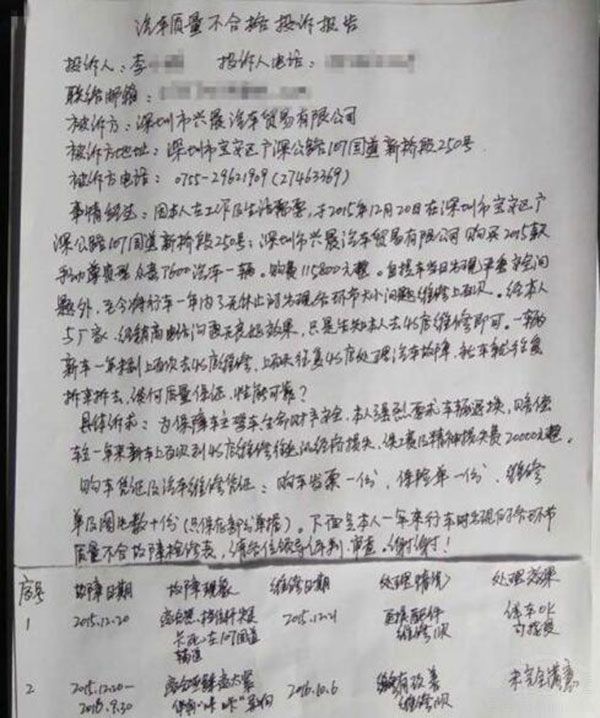 汽车质量不合格投诉报告
投诉人：李 投诉人电话：
联络邮箱：
被诉方：深圳市兴展汽车贸易有限公司
被诉方地址：深圳市宝安区广深公路107国道新桥段250号
被诉方电话：0755-29621909(27463369)
事情经过：因本人在工作及生活需要，于2015年12月20日在深圳市宝安区广
深公路107国道新桥段250号：深圳市兴展汽车贸易有限公司购买2015款
手动尊贵型众泰T600汽车一辆。购费115800元整。自提车当日出现严重安全问
题外，至今排行车一年内了无休止的出现各环节大小问题维修上百次。经本人
与厂家、经销商电话沟通无良起效果，只是告知本人去4S店维修即可。一辆
新车一年接到上百次去4S店维修，上百次往复4S店处理汽车故障，新车就往复
拆来拆去，谈何质量保证，性能可靠？
具体诉求：为保障车主驾车生命财产安全，本人强烈要求车辆退换，赔偿
车主一年来新车上百次到4S店维修往返的经济损失，误工费及精神损失费20000元整。
购车凭证及汽车维修凭证：购车发票一份、保险单一份、维修
单及图片数十份(只保存部分单据)。下面是本人一年来行车时出现的各环节
质量不合故障检修表，请各位领导评判、审查。谢谢！
序号 故障日期 故障现象 维修日期 处理情况 处理效果
1 2015.12.20 2015.12.21 更换配件 停车OK
卡死在107国道 维修1次
辅道
2 2015.12.20- 2016.10.6 未完全满意
2016.9.30 伴有"咔咔"异响 维修1次